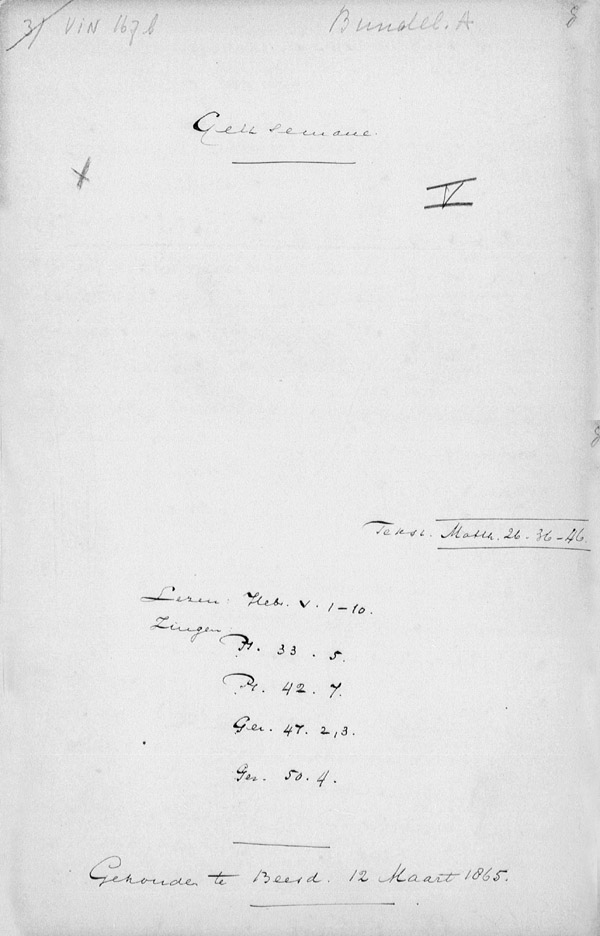 31 VIN 167 b Bundel. A 8
Gethsemane.
V
Tekst. Matth. 26. 36-46.
Lezen Hebr. V. 1-10.
Zingen
Ps. 33. 5.
Ps. 42. 7.
Gez. 47. 2, 3.
Gez. 50. 4.
Gehouden te Beesd. 12 Maart 1865.